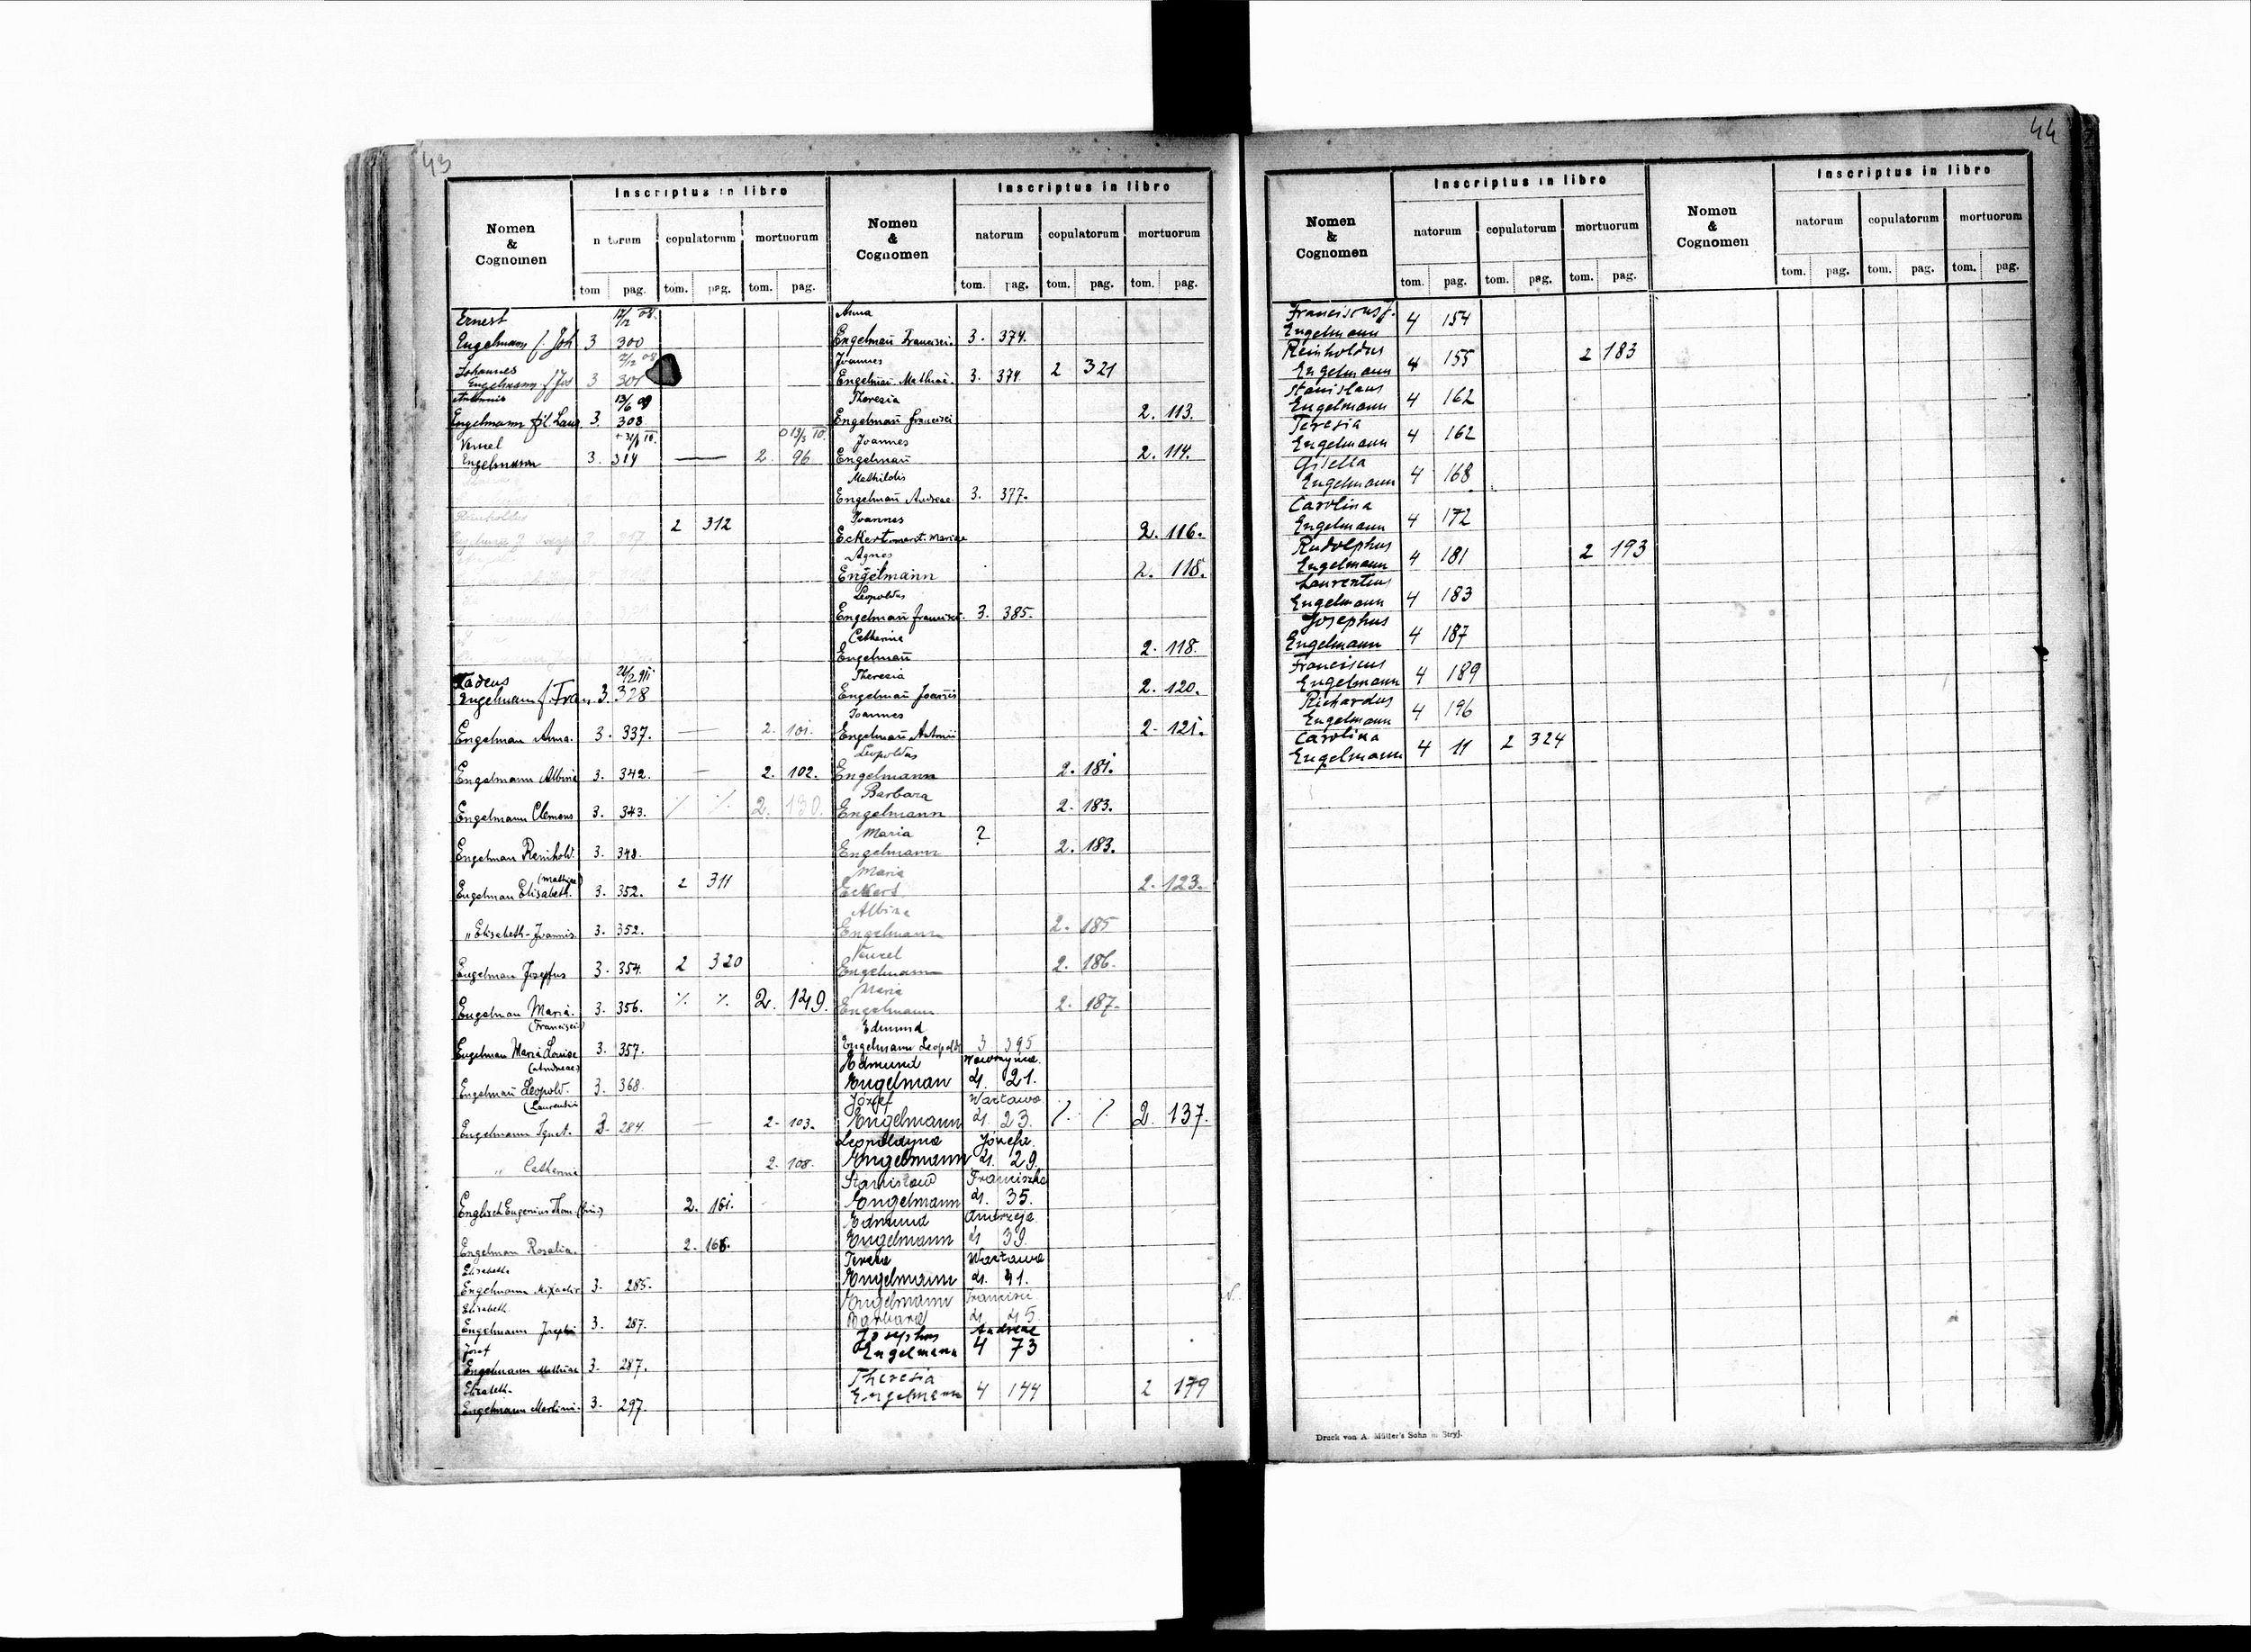 43
Inscriptus in libro
Nomen & Cognomen
n torum copulatorum mortuorum
tom pag. tom. pag. tom. pag.
Ernest 12/12 08.
Engelmann f. Joh 3 300
Johannes 2/2 08
Engelmann f Jos 3 301
13/6 09
Engelmann fil. Laur. 3. 308
Vensel
Engelmann 3. 314 — 2. 96
Reinholdus 2 312
Tadeus
Engelmann f. Fran. 3. 328
Engelman Anna. 3. 337. — 2. 101.
Engelmann Albine 3. 342. — 2. 102.
Engelmann Clemens 3. 343. % % 2. 130.
Engelman Reinhold. 3. 348.
(Mathiae)
Engelman Elisabeth. 3. 352. 2 311
" Elisabeth - Joannis. 3. 352.
Engelman Josephus 3. 354. 2 320
Engelman Maria. 3. 356. % % 2. 149.
(Francisci)
Engelman Maria Louise 3. 357.
(Andreae)
Engelmañ Leopold. 3. 368.
(Laurentii
Engelmann Ignat. 3. 284. — 2. 103.
" Catherine 2. 108.
Englisch Eugenius Thom. 2. 161.
Engelman Rosalia. 2. 168.
Elisabeth
Engelmann 3. 285.
Elisabeth
Engelmann Josephi 3. 287.
Josef
Engelmann Mathiae 3. 287.
Elisabeth.
Engelmann Martini. 3. 297.
Inscriptus in libro
Nomen & Cognomen
natorum copulatorum mortuorum
tom. pag. tom. pag. tom. pag.
Anna
Engelmañ Francisci. 3. 374.
Joannes
Engelmañ Mathiae. 3. 374 2 321
Theresia
Engelmañ Francisci 2. 113.
Joannes
Engelmañ 2. 114.
Mathildis
Engelmañ Andreae. 3. 377.
Joannes
Eckert marit. Mariae 2. 116.
Agnes
Engelmann 2. 118.
Leopoldus
Engelmañ Francisci. 3. 385.
Catherine
Engelmañ 2. 118.
Theresia
Engelmañ Joañis 2. 120.
Joannes
Engelmañ Antonii 2. 121.
Leopoldus
Engelmann 2. 181.
Barbara
Engelmann 2. 183.
Maria ?
Engelmann 2. 183.
Maria
Eckert 2. 123.
Albina
Engelmann 2. 185
Vensel
Engelmann 2. 186.
Maria
Engelmann 2. 187.
Edmund
Engelmann Leopoldi 3 395
Edmund Wawrzyńca.
Engelman 4. 21.
Józef Wacława
Engelmann 4. 23. % % 2. 137.
Leopoldyna Józefa.
Engelmann 4. 29.
Stanisław Franciszka
Engelmann 4. 35.
Edmund Andrzeja.
Engelmann 4 39.
Teresa Wacława
Engelmann 4. 41.
Engelmann Francisci
Barbara 4 45.
Josephus Andreae
Engelmann 4 73
Theresia
Engelmann 4 144 2 179
44
Inscriptus in libro
Nomen & Cognomen
natorum copulatorum mortuorum
tom. pag. tom. pag. tom. pag.
Franciscus J.
Engelmann 4 154
Reinholdus
Engelmann 4 155 2 183
Stanislaus
Engelmann 4 162
Teresia
Engelmann 4 162
Gisella
Engelmann 4 168
Carolina
Engelmann 4 172
Rudolphus
Engelmann 4 181 2 193
Laurentius
Engelmann 4 183
Josephus
Engelmann 4 187
Franciscus
Engelmann 4 189
Richardus
Engelmann 4 196
Carolina
Engelmann 4 11 2 324
Inscriptus in libro
Nomen & Cognomen
natorum copulatorum mortuorum
tom. pag. tom. pag. tom. pag.
Druck von A. Müller's Sohn in Stryj.